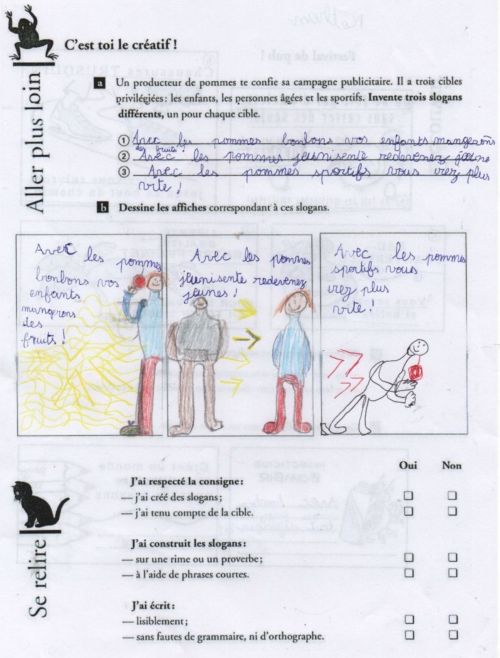 C'est toi le créatif !
Aller plus loin
a Un producteur de pommes te confie sa campagne publicitaire. Il a trois cibles
privilégiées: les enfants, les personnes âgées et les sportifs. Invente trois slogans
différents, un pour chaque cible.
① Avec les pommes bonbons vos enfants mangerons
des fruits !
② Avec les pommes jeunisente redevenez jeune
③ Avec les pommes sportifs vous irez plus
vite !
b Dessine les affiches correspondant à ces slogans.
Avec les pommes
bonbons vos
enfants
mangerons
des
fruits !
Avec les pommes
jeunisente redevenez
jeunes !
Avec les pommes
sportifs vous
irez plus
vite !
Oui Non
Se relire
J'ai respecté la consigne :
— j'ai créé des slogans ;
— j'ai tenu compte de la cible.
J'ai construit les slogans :
— sur une rime ou un proverbe ;
— à l'aide de phrases courtes.
J'ai écrit :
— lisiblement ;
— sans fautes de grammaire, ni d'orthographe.